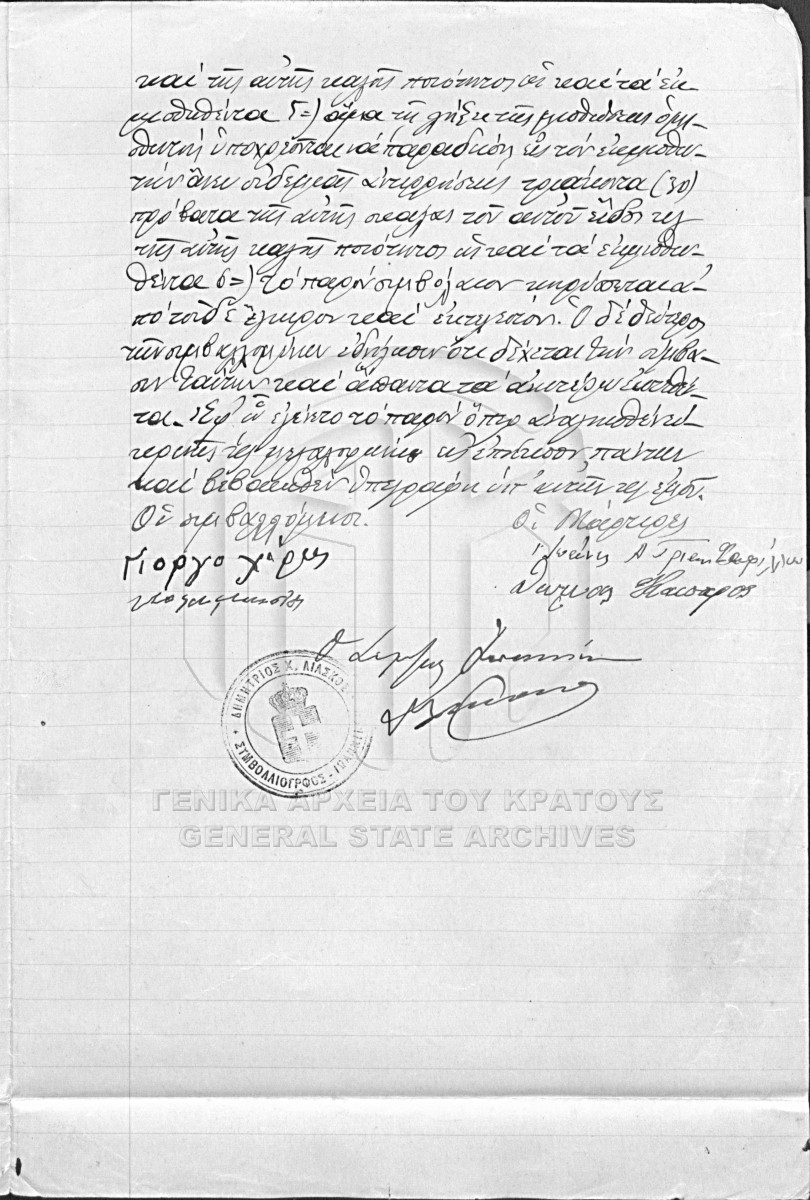 καὶ τῆς αὐτῆς καλῆς ποιότητος ὡς καὶ τὰ ἐκ-
μισθωθέντα 5=) ἅμα τῇ λήξει τῆς μισθώσεως ὁ μι-
σθωτὴς ὑποχρεοῦται νὰ παραδώσῃ εἰς τὸν ἐκμισθω-
τὴν ἄνευ οὐδεμιᾶς ἀντιρρήσεως τριάκοντα (30)
πρόβατα τῆς αὐτῆς τοῦ αὐτοῦ εἴδους καὶ
τῆς αὐτῆς καλῆς ποιότητος ὡς καὶ τὰ ἐκμισθω-
θέντα 6=) τὸ παρὸν συμβόλαιον κηρύσσεται ἀ-
πὸ τοῦδε ἔγκυρον καὶ ἐκτελεστόν. Ὁ δὲ δεύτερος
τῶν συμβαλλομένων ἐδήλωσεν ὅτι δέχεται τὴν σύμβα-
σιν ταύτην καὶ ἅπαντα τὰ ἀνωτέρω ἐκτεθέν-
τα. Ἐφ' ᾧ ἐγένετο τὸ παρὸν ὅπερ ἀναγνωσθὲν εὐ-
κρινῶς καὶ μεγαλοφώνως εἰς ἐπήκοον πάντων
καὶ βεβαιωθὲν ὑπεγράφη ὑπ' αὐτῶν καὶ ἐμοῦ.
Οἱ συμβαλλόμενοι. Οἱ Μάρτυρες
Γιόργο
Ὁ
ΔΗΜΗΤΡΙΟΣ Χ. ΛΙΑΣΚΟΣ
ΣΥΜΒΟΛΛΙΟΓΡΦΟΣ
ΓΕΝΙΚΑ ΑΡΧΕΙΑ ΤΟΥ ΚΡΑΤΟΥΣ
GENERAL STATE ARCHIVES